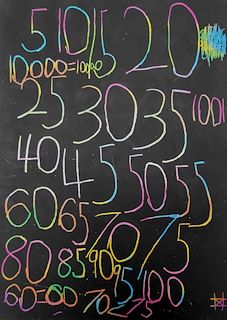 5 10 15 20
10,000=10,000
25 30 35 1001
40 45 50 55
60 65 70 75
80 85 90 95 100
60=60 70<75
#